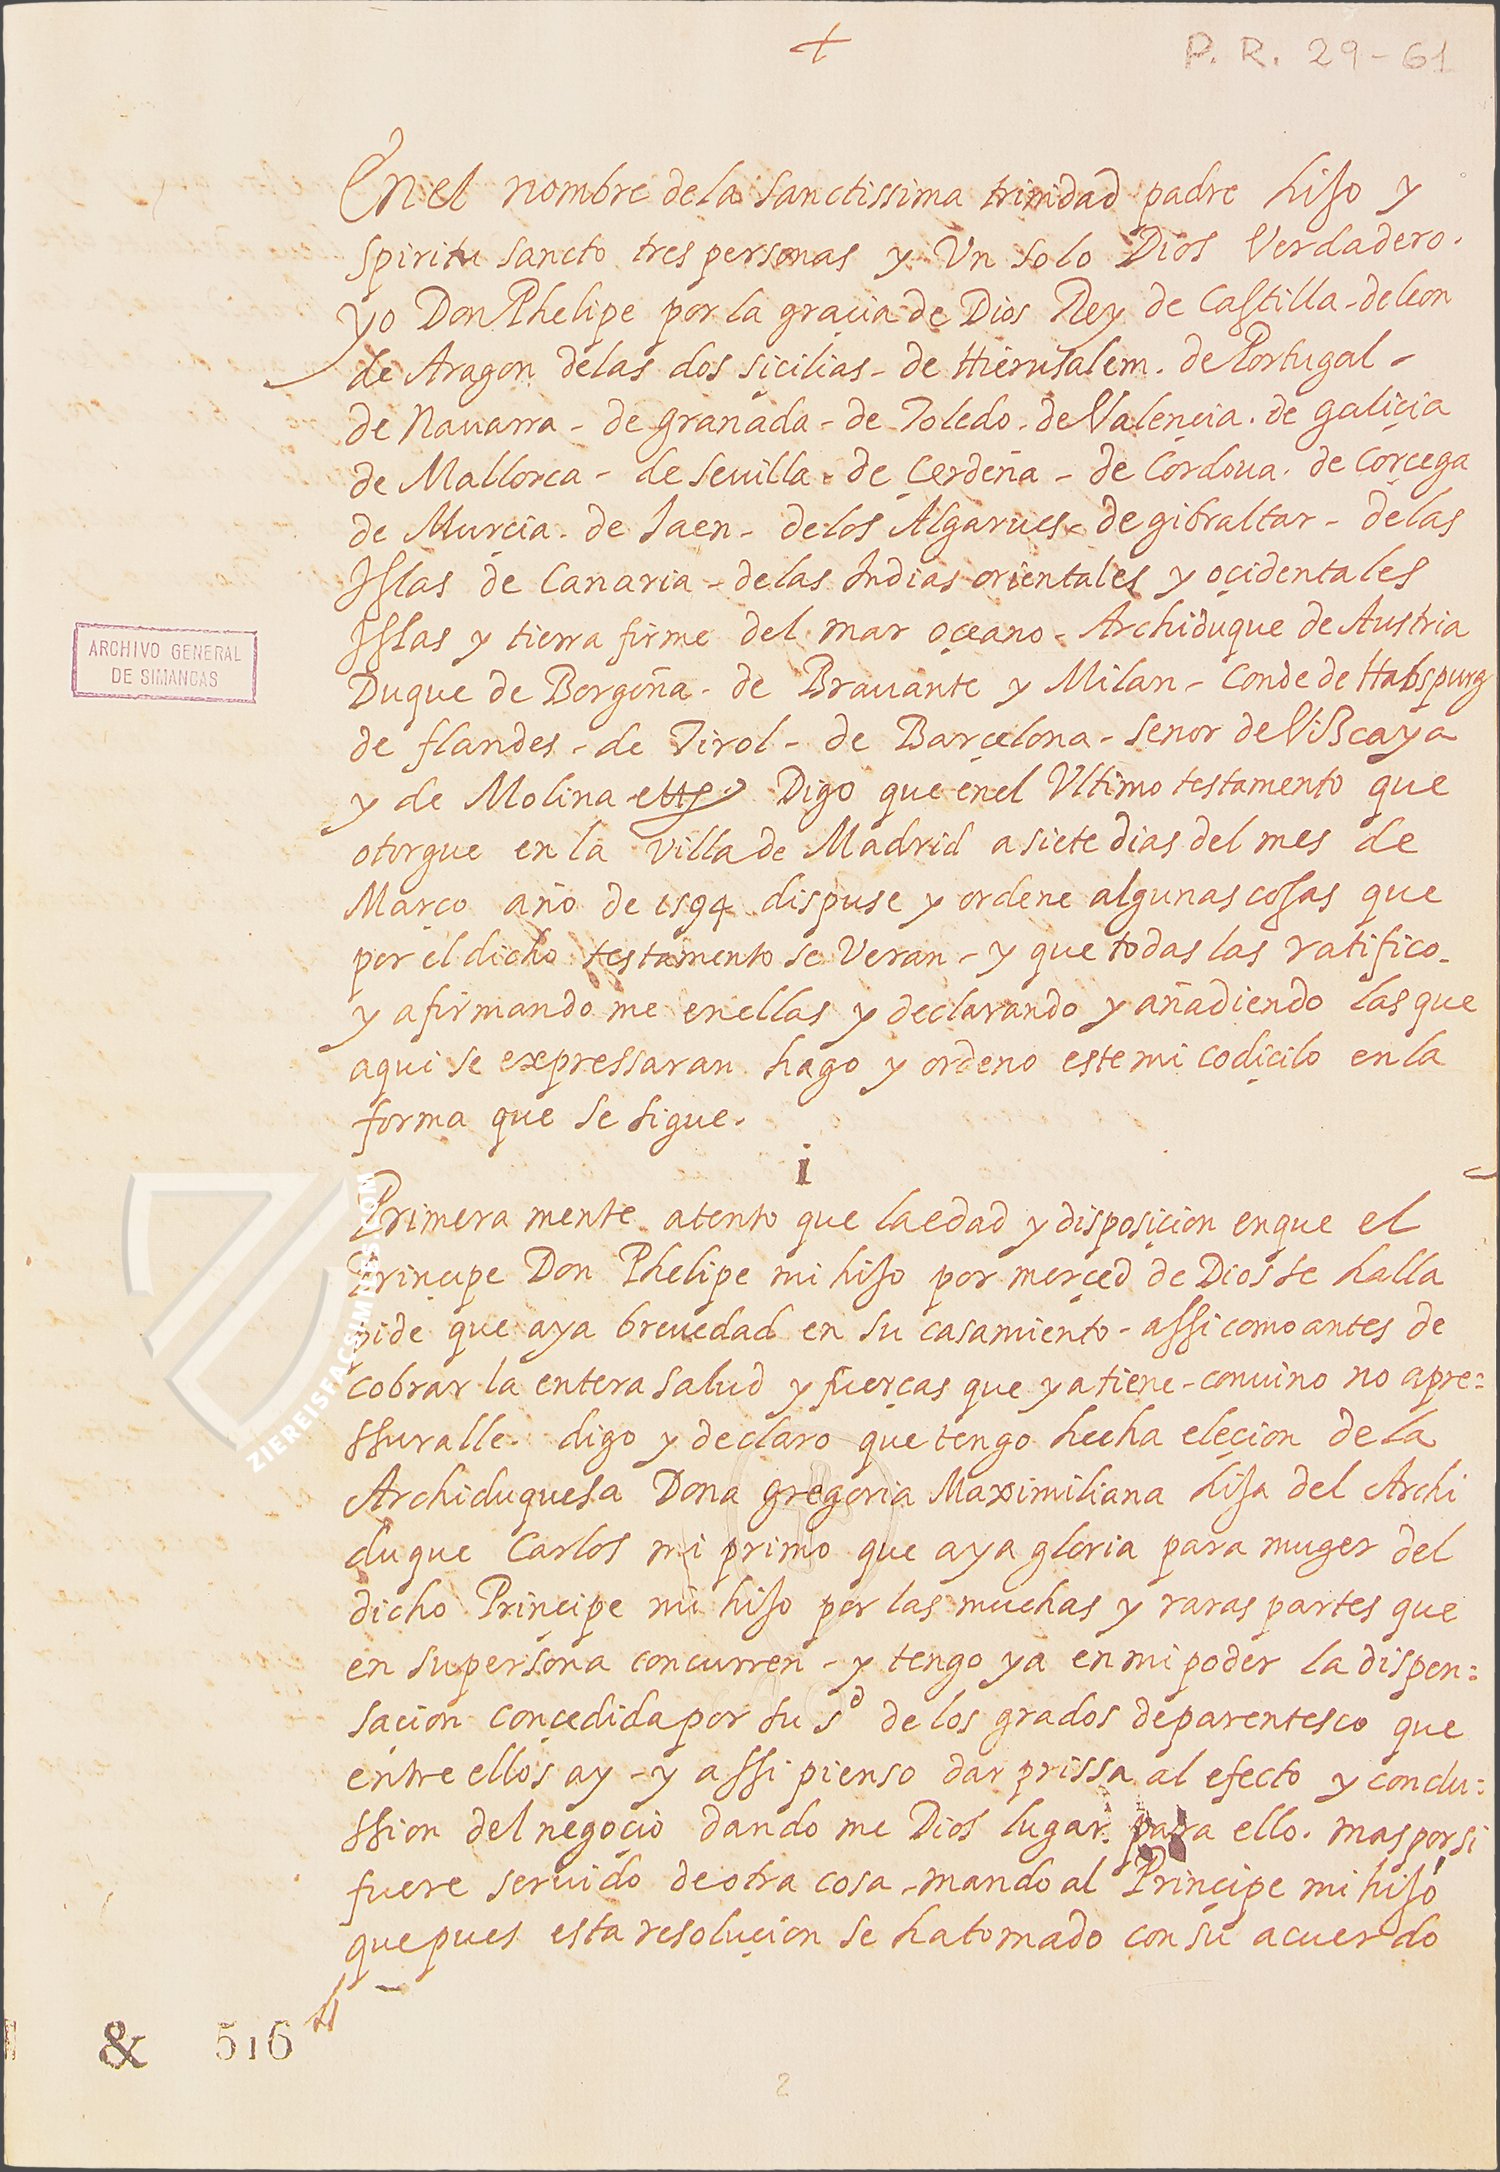 +
P. R. 29-61
En el nombre de la Sanctissima trinidad padre hijo y
spiritu sancto tres personas y Un solo Dios Verdadero.
yo Don Phelipe por la gracia de Dios Rey de Castilla - de leon
de Aragon de las dos sicilias - de Hierusalem. de Portugal -
de Nauarra - de granada - de Toledo - de Valencia. de galicia
de Mallorca - de Seuilla - de Çerdeña - de Cordoua. de Corçega
de Murcia. de Jaen - de los Algarues - de gibraltar - de las
Islas de Canaria - de las Indias orientales y ocidentales
Islas y tierra firme del mar oceano - Archiduque de Austria
Duque de Borgoña - de Brauante y Milan - Conde de Habspurg
de flandes - de Tirol - de Barcelona - Senor de Viscaya
y de Molina Digo que en el Ultimo testamento que
otorgue en la villa de Madrid a siete dias del mes de
Março año de 1594 dispuse y ordene algunas cosas que
por el dicho testamento se Veran - y que todas las ratifico -
y afirmando me en ellas y declarando y añadiendo las que
aqui se expressaran hago y ordeno este mi codicilo en la
forma que se sigue.
i
Primera mente atento que la edad y disposicion en que el
Principe Don Phelipe mi hijo por merced de Dios se halla
pide que aya breuedad en su casamiento - assi como antes de
cobrar la entera salud y fuerças que ya tiene - conuino no apre=
ssuralle. digo y declaro que tengo hecha elecion de la
Archiduquesa Dona gregoria Maximiliana hija del Archi
duque Carlos mi primo que aya gloria para muger del
dicho Principe mi hijo por las muchas y raras partes que
en su persona concurren - y tengo ya en mi poder la dispen=
sacion concedida por su Sd de los grados de parentesco que
entre ellos ay - y assi pienso dar prissa al efecto y conclu=
ssion del negocio dando me Dios lugar para ello. mas por si
fuere seruido de otra cosa - mando al Principe mi hijo
que pues esta resolucion se ha tomado con su acuerdo
ARCHIVO GENERAL
DE SIMANCAS
ZIEREISFACSIMILES.COM
& 516
2